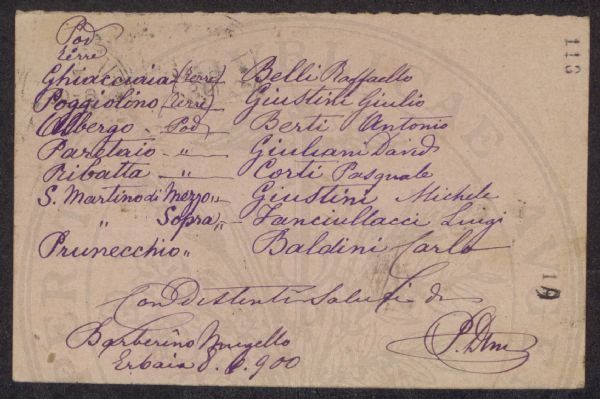 Pod
Terre
Ghiacciaia (Terre) Belli Raffaello
Poggiolino (Terre) Giustini Giulio
Albergo - Pod, Berti Antonio
Paretaio - " - Giuliani David
Ribatta - " - Corti Pasquale
S. Martino di Mezzo " - Giustini Michele
" Sopra " - Fanciullacci Luigi
Prunecchio " Baldini Carlo
Con Distinti Saluti
Barberino Mugello
Erbaia 8. 6. 900
116
19